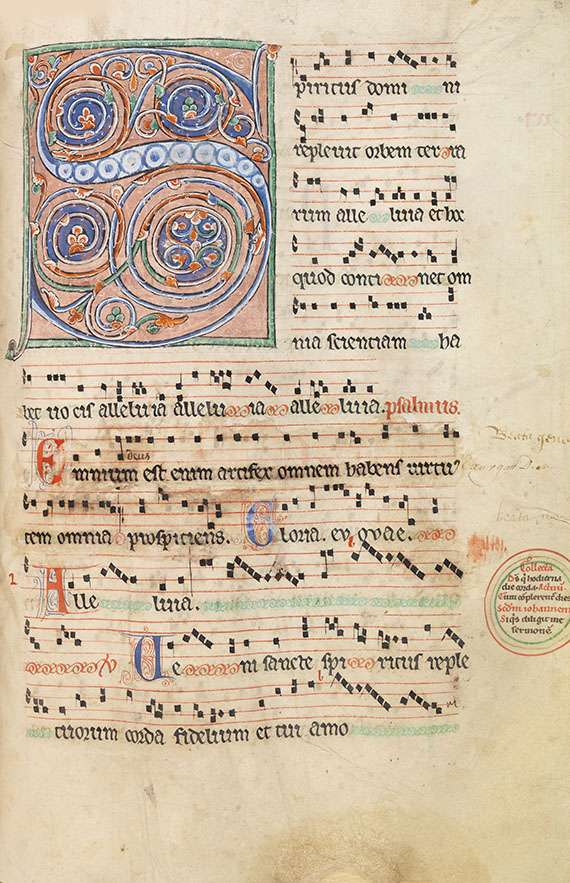 Spiritus domi ni
repleuit orbem terra
rum alle luia et hoc
quod conti net om
nia scientiam ha
bet uocis alleluia alleluia alle luia. psalmus.
deus
Omnium est enim artifex omnem habens uirtu
tem omnia prospiciens. Gloria. euouae.
Alle luia.
V Ue ni sancte spi ritus reple
tuorum corda fidelium et tui amo
Beata gen
beata
Collecta
Ds q hodierna
die corda. Actuū
Cum cōplerent dies
Sedm iohannem
Siqs diligit me
sermonē